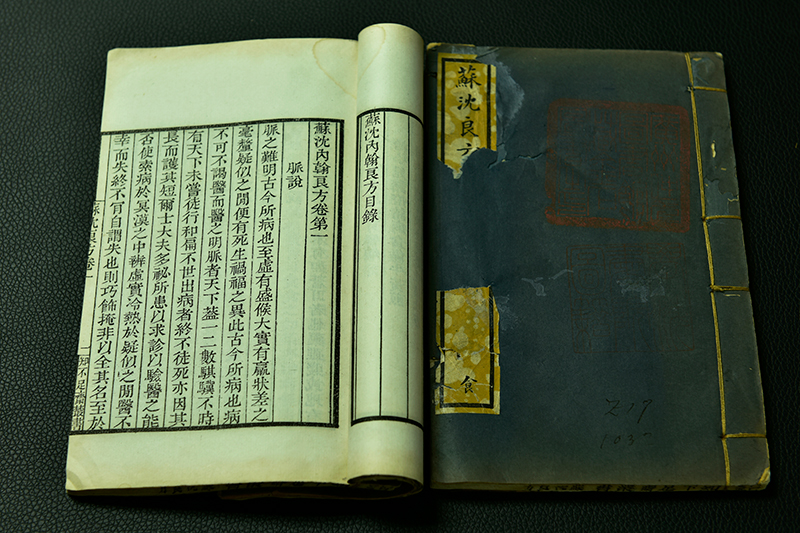 蘇沈良方
食
蘇沈內翰良方目錄
蘇沈內翰良方卷第一
脈說
脈之難明古今所病也至虛有盛候大實有羸狀差之
毫釐疑似之閒便有死生禍福之異此古今所病也病
不可不謁醫而醫之明脈者天下葢一二數騏驥不時
有天下未嘗徒行和扁不世出病者終不徒死亦因其
長而護其短爾士大夫多祕所患以求診以驗醫之能
否使索病於冥漠之中辨虛實冷熱於疑似之閒醫不
幸而失終不肎自謂失也則巧飾掩非以全其名至於
蘇沈良方卷一
知不足齋叢書